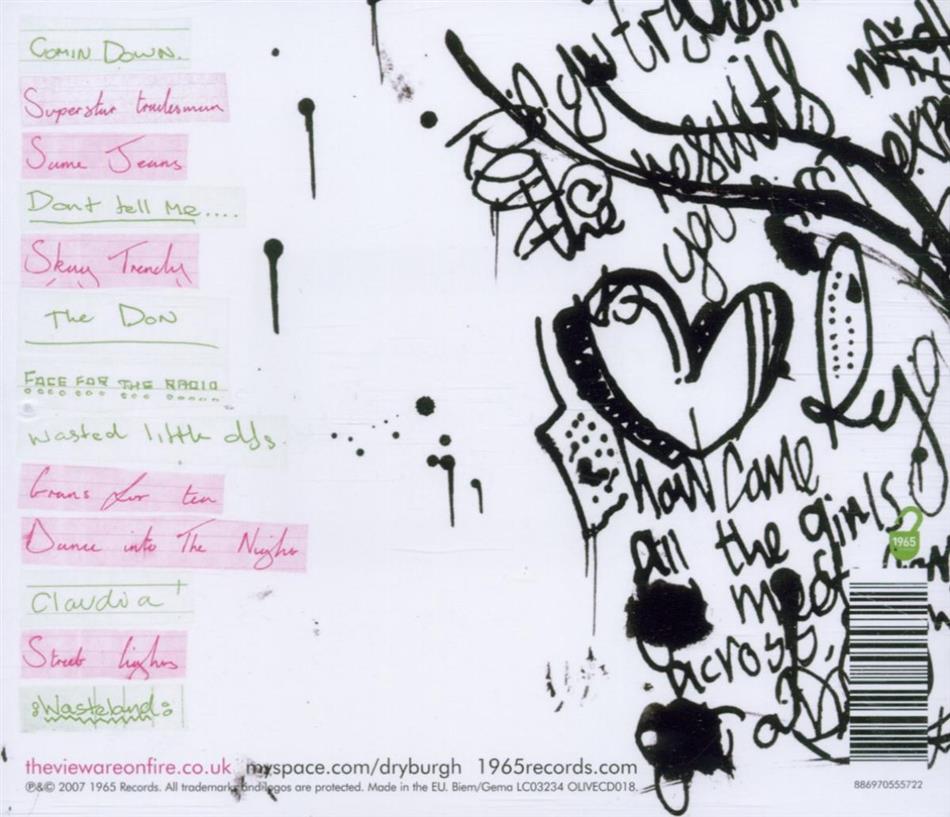 Comin Down.
Superstar tradesman
Same Jeans
Dont tell Me....
Skag Trendy
The Don
FACE FOR THE RADIO
wasted little djs.
Grans for tea
Dance into The Night
Claudia
Street lights
Wasteland
theviewareonfire.co.uk myspace.com/dryburgh 1965records.com
℗&© 2007 1965 Records. All trademarks and logos are protected. Made in the EU. Biem/Gema LC03234 OLIVECD018.
the results
how come
all the girls
meet
across,
1965
886970555722